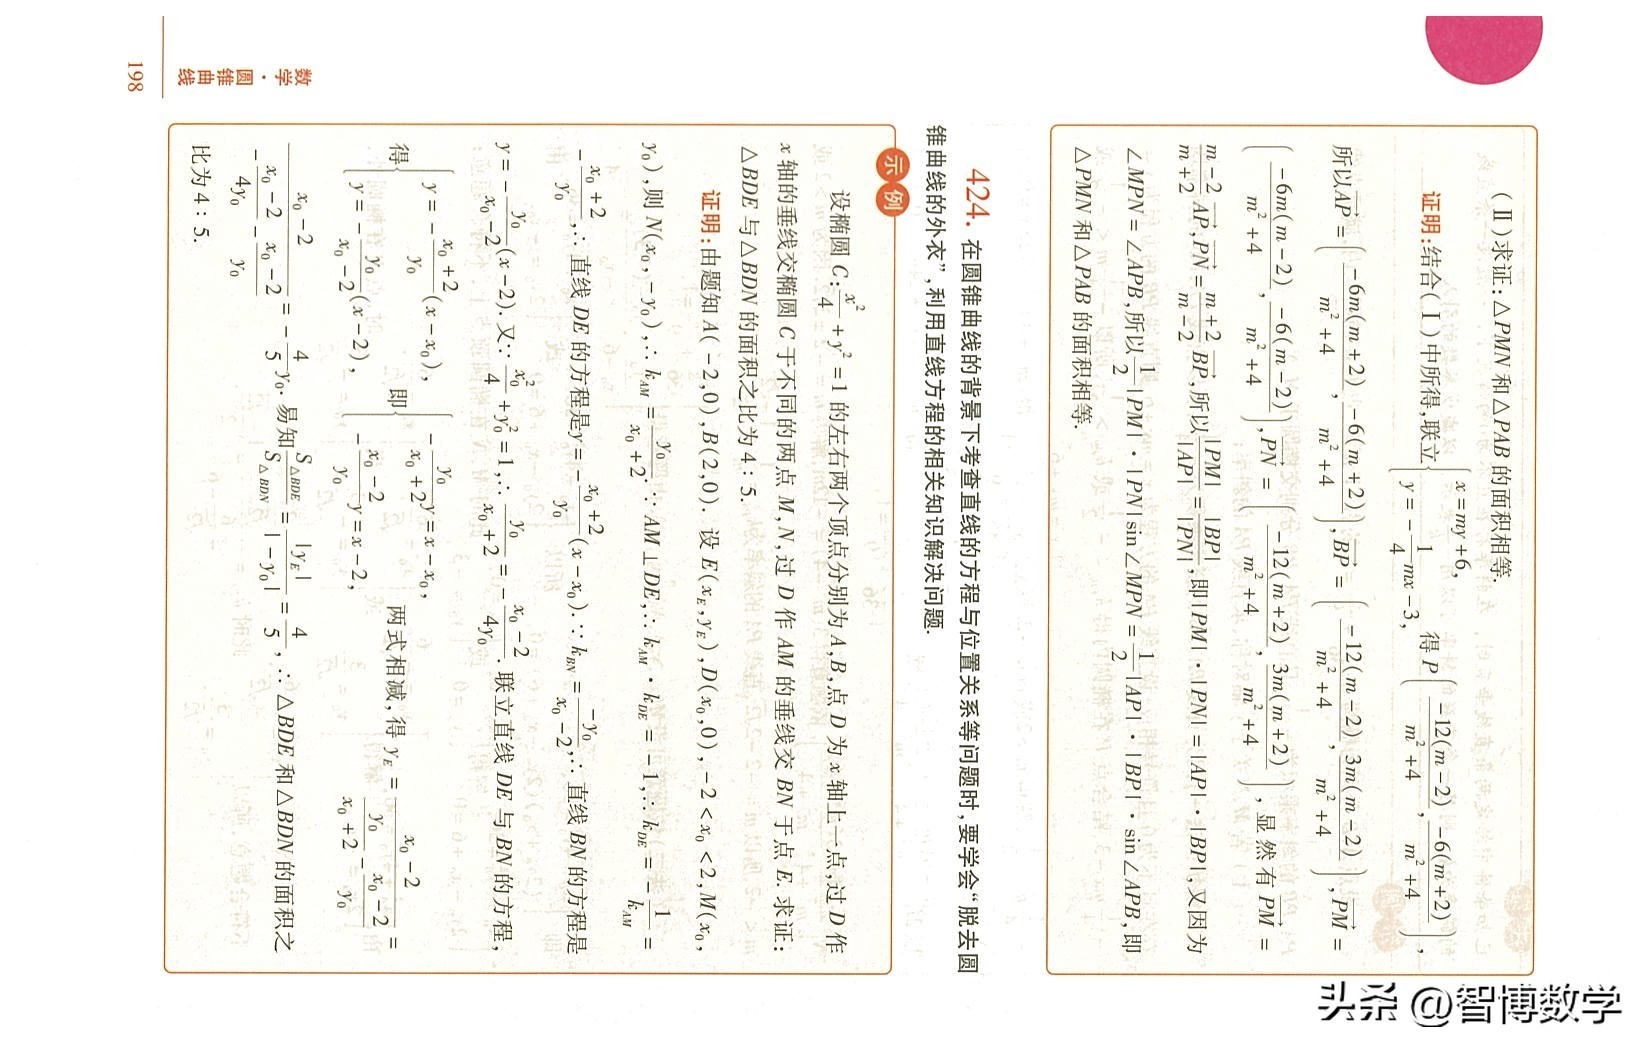 (Ⅱ)求证:△PMN和△PAB的面积相等.
证明:结合(Ⅰ)中所得,联立{x=my+6, y=-1/4mx-3, 得P(-12(m-2)/(m²+4), -6(m+2)/(m²+4)),
所以AP→=(-6m(m+2)/(m²+4), -6(m+2)/(m²+4)),BP→=(-12(m-2)/(m²+4), 3m(m-2)/(m²+4)),PM→=
(-6m(m-2)/(m²+4), -6(m-2)/(m²+4)),PN→=(-12(m+2)/(m²+4), 3m(m+2)/(m²+4)),显然有PM→=
(m-2)/(m+2)AP→,PN→=(m+2)/(m-2)BP→,所以|PM|/|AP|=|BP|/|PN|,即|PM|·|PN|=|AP|·|BP|,又因为
∠MPN=∠APB,所以1/2|PM|·|PN|sin∠MPN=1/2|AP|·|BP|·sin∠APB,即
△PMN和△PAB的面积相等.
424. 在圆锥曲线的背景下考查直线的方程与位置关系等问题时,要学会“脱去圆
锥曲线的外衣”,利用直线方程的相关知识解决问题.
示例
设椭圆C:x²/4+y²=1的左右两个顶点分别为A,B,点D为x轴上一点,过D作
x轴的垂线交椭圆C于不同的两点M,N,过D作AM的垂线交BN于点E.求证:
△BDE与△BDN的面积之比为4:5.
证明:由题知A(-2,0),B(2,0). 设E(x_E,y_E),D(x₀,0),-2<x₀<2,M(x₀,
y₀),则N(x₀,-y₀),∴k_AM=y₀/(x₀+2).∵AM⊥DE,∴k_AM·k_DE=-1,∴k_DE=-1/k_AM=
-(x₀+2)/y₀,∴直线DE的方程是y=-(x₀+2)/y₀(x-x₀).∵k_BN=-y₀/(x₀-2),∴直线BN的方程是
y=-y₀/(x₀-2)(x-2).又∵x₀²/4+y₀²=1,∴y₀/(x₀+2)=-(x₀-2)/4y₀.联立直线DE与BN的方程,
得{y=-(x₀+2)/y₀(x-x₀), y=-y₀/(x₀-2)(x-2), 即{-y₀/(x₀+2)y=x-x₀, -(x₀-2)/y₀y=x-2, 两式相减,得y_E=(x₀-2)/(y₀/(x₀+2)-(x₀-2)/y₀)=
(x₀-2)/(-(x₀-2)/4y₀-(x₀-2)/y₀)=-4/5y₀.易知S△BDE/S△BDN=|y_E|/|-y₀|=4/5,∴△BDE和△BDN的面积之
比为4:5.
数学·圆锥曲线
198
头条 @智博数学